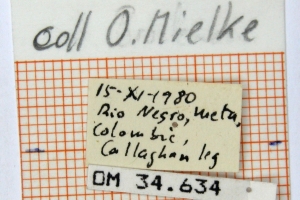 coll O. Mielke
15-XI-1980
Rio Negro, Meta,
Colombia,
Callaghan leg
OM 34.634